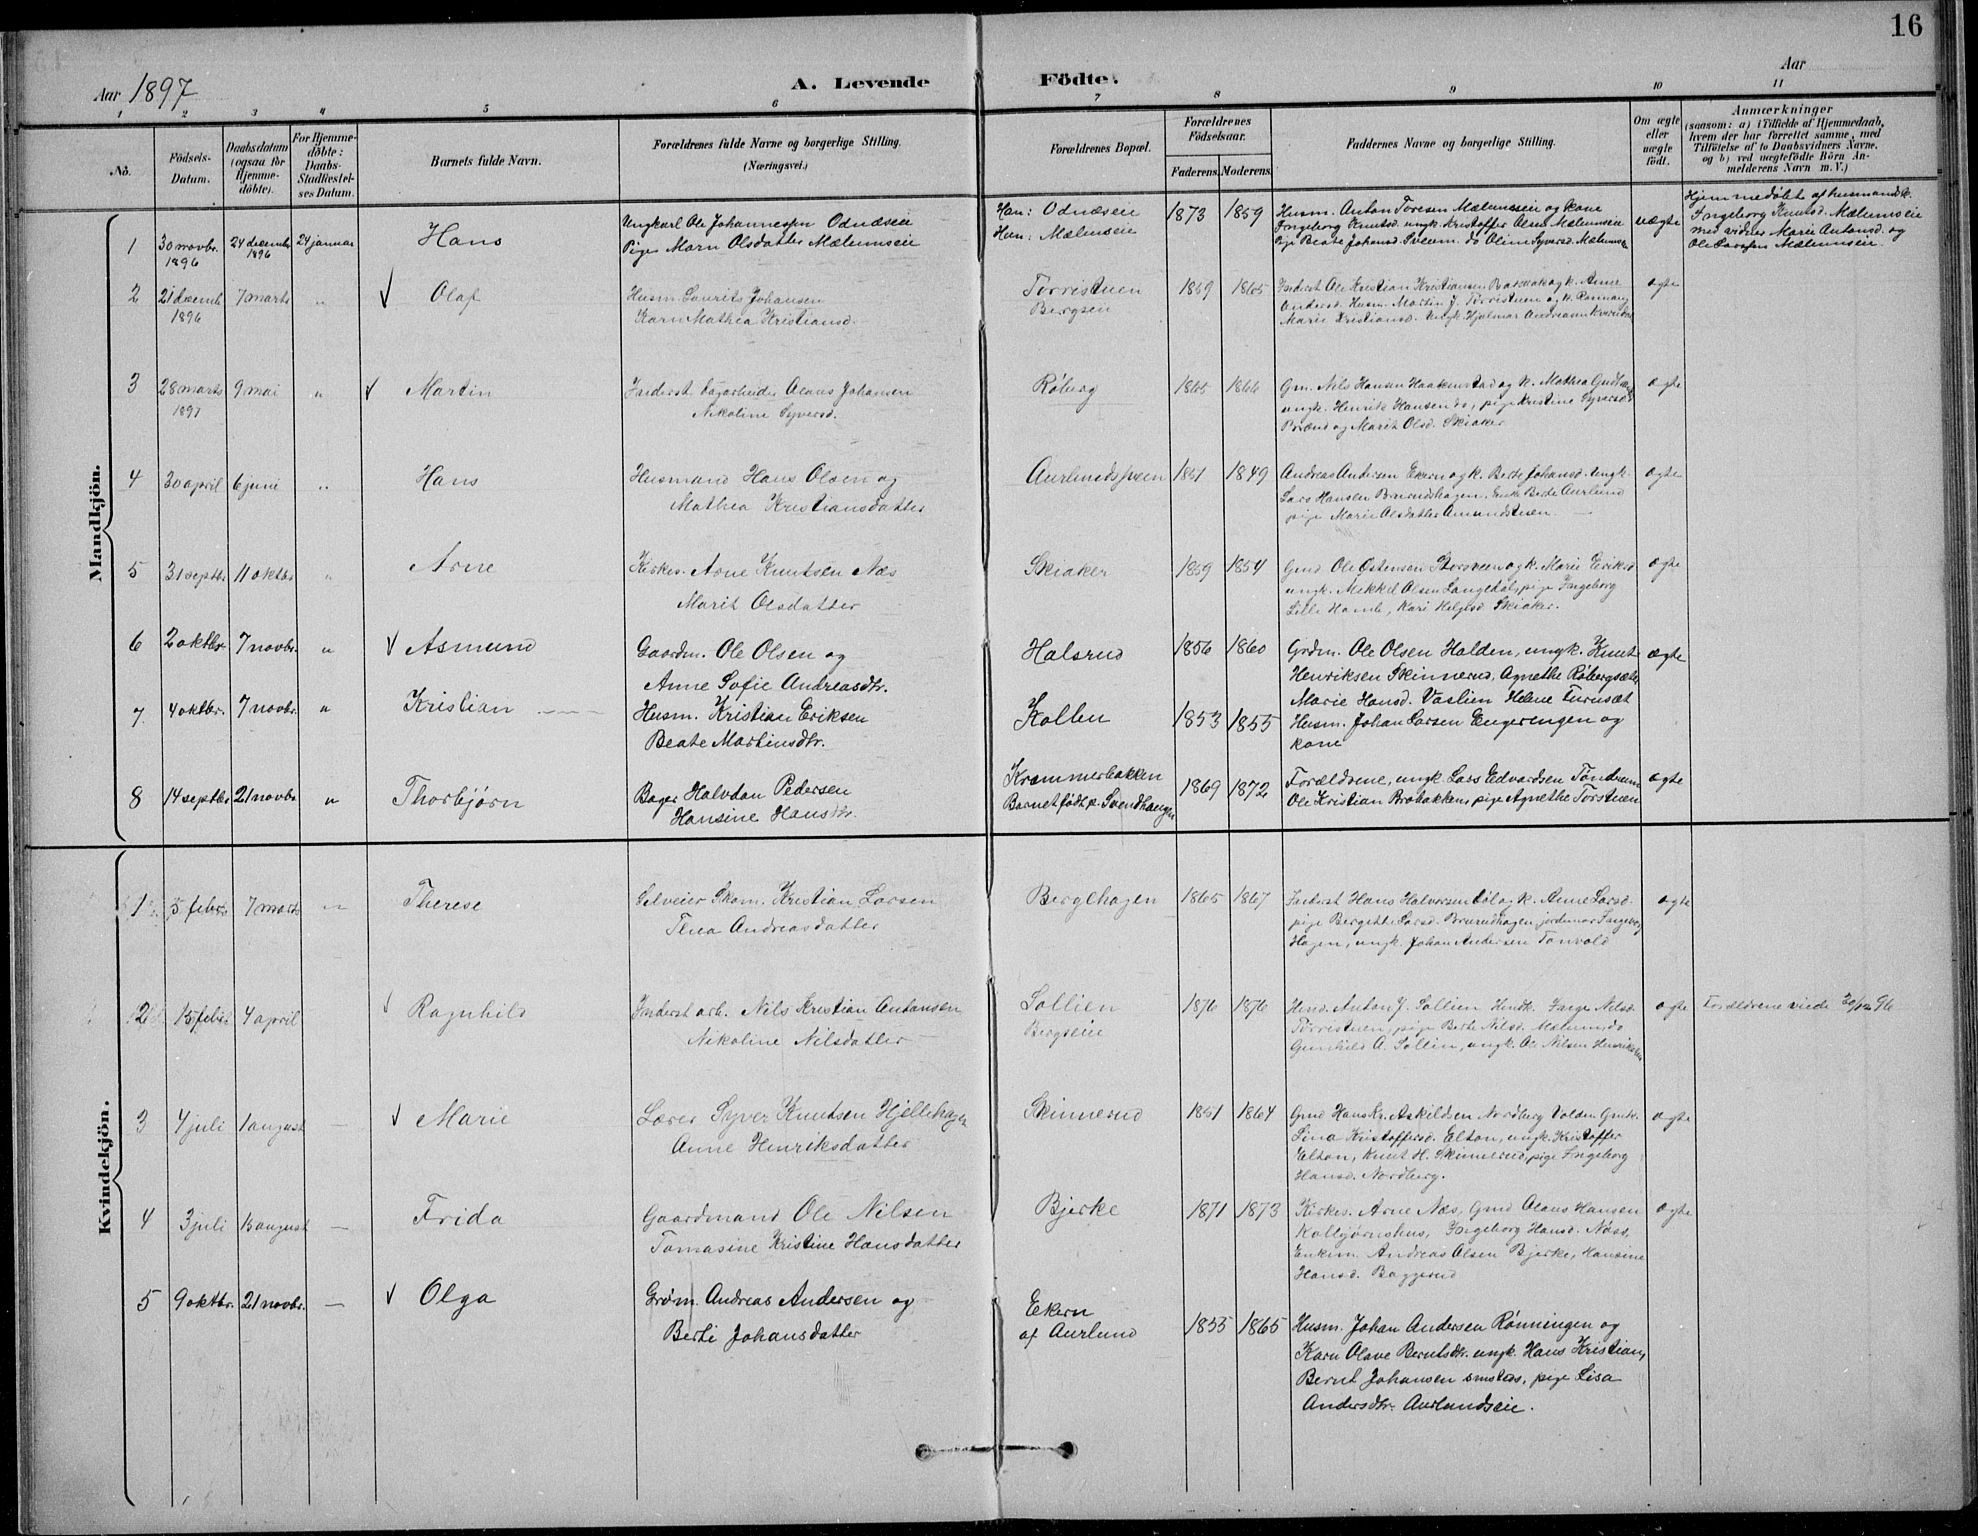 16
Aar 1897
A. Levende Födte.
Aar
1 2 3 4 5 6 7 8 9 10 11
No.
Födsels-Datum.
Daabsdatum (ogsaa for Hjemme-döbte).
For Hjemme-döbte: Daabs Stadfæstel-ses Datum.
Barnets fulde Navn.
Forældrenes fulde Navne og borgerlige Stilling. (Næringsvei.)
Forældrenes Bopæl.
Forældrenes Födselsaar.
Faderens. Moderens.
Faddernes Navne og borgerlige Stilling.
Om ægte eller uægte födt.
Anmærkninger
(saasom: a) i Tilfælde af Hjemmedaab,
hvem der har forrettet samme, med
Tilföielse af to Daabsvidners Navne,
og b) ved uægtefödte Börn An-
melderens Navn m. V.)
Mandkjön.
1 30 novbr. 1896 24 decembr 1896 24 januar Hans
Ungkarl Ole Johannessen Odnæseie
Pige Marn Olsdatter Mælumseie
Han: Odnæseie
Hun: Mælumseie
1873 1859
Husm. Anton Toresen Mælumseie og kone
Ingeborg Knutsd. ungk. Kristoffer Mælumseie
Pige Beate Johansd. Sveum do Oline Syversd. Mælumseie
uægte
Hjemmedøbt af husmandsk.
Ingeborg Knutsd. Mælumseie
med vidner Marie Antonsd. og
Ole Larsen Mælumseie
2 21 decemb 1896 7 marts " √ Olaf
Husm. Laurits Johansen
Karn Mathea Kristiansd.
Torristuen
Bergseie
1869 1865
Inderst Ole Kristian Kristiansen og k. Anne
Andersd. Husm. Martin J. Torristuen og k.
Marie Kristiansd. Ungk. Hjalmar Andreasen
ægte
3 28 marts 1897 9 mai " √ Martin
Inderst Olaus Johansen
Nikoline Syversd.
Røberg
1865 1866
Gm. Nils Hansen Haakenstad og k. Mathea
ungk. Henrik Hansen do, pige Kristine Syversd.
og Marit Olsd. Skiaker
ægte
4 30 april 6 juni " Hans
Husmand Hans Olsen og
Mathea Kristiansdatter
Aurlundssveen
1851 1849
Andreas Andersen Ekern og k. Berte Johansd. Ungk.
Lars Hansen Brurudshagen, Enke Berte Aurlund
pige Marie Olsdatter Amundstuen
ægte
5 31 septbr 11 oktbr " Arne
Kirkes. Arne Knutsen Næs
Marit Olsdatter
Skiaker
1859 1854
Gmd Ole Østensen Storsveen og k. Marie Eriksd
ungk. Mekkel Olsen Langedal, pige Ingeborg
Lille Homb, Kari Helgesd Skiaker.
ægte
6 2 oktbr. 7 novbr. " √ Asmund
Gaardm. Ole Olsen og
Anne Sofie Andreasdtr.
Halsrud
1856 1860
Grdm. Ole Olsen Halden, ungk. Knut
Henriksen Skinnerud, Agnethe Røbergsæter
ægte
7 4 oktbr. 7 novbr. " Kristian
Husm. Kristian Eriksen
Beate Martinsdtr.
Kollen
1853 1855
Marie Hansd. Vaslien Helene Furusæt
Husm. Johan Larsen Engeringen og
kone
8 14 septbr 21 novbr " Thorbjørn
Bager Halvdan Pedersen
Hansine Hansdtr.
Krammerbakken
Barnet født p. Svendhaugen
1869 1872
Forældrene, ungk. Lars Edvardsen Tondrum
Ole Kristian Brobakken, pige Agnethe Torstuen
ægte
Kvindekjön.
1 5 febr 7 marts Therese
Selveier Skom. Kristian Larsen
Thea Andreasdatter
Berglhagen
1865 1867
Inderst Hans Halvorsen og k. Anne Larsd.
pige Bergitte Larsd. Brurudhagen, jordemor Ingeborg
Hagen, ungk. Johan Andersen Tonvold
ægte
2 15 febr 4 april √ Ragnhild
Inderst arb. Nils Kristian Antonsen
Nikoline Nilsdatter
Sollien
Bergseie
1876 1876
Husm. Anton J. Sollien Nilsd.
Torristuen, pige Berte Nilsd. Mælum, do
Gunhild A. Sollien, ungk. Ole Nilsen
ægte
Forældrene viede 30/12 96
3 4 juli 1 august — √ Marie
Lærer Syver Knutsen Hjellehagen
Anne Henriksdatter
Skinnerud
1861 1864
Gmd Hans Kr. Askildsen Nordberg Volden Gmk.
Lina Kristoffersd. Elton, ungk. Kristoffer
Elton, Knut H. Skinnerud, pige Ingeborg
Hansd. Nordberg.
ægte
4 3 juli 15 august — Frida
Gaardmand Ole Nilsen
Tomasine Kristine Hansdatter
Bjerke
1871 1873
Kirkes. Arne Næs, Gmd Olaus Hansen
Kolbjørnshus, Ingeborg Hansd. Næss,
Enkem. Andreas Olsen Bjerke, Hansine
Hansd. Baggerud
ægte
5 9 oktbr. 21 novbr. — √ Olga
Grdm. Andreas Andersen og
Berte Johansdatter
Ekern
af Aurlund
1855 1865
Husm. Johan Andersen Rønningen og
Karn Olave Berntsdtr. ungk. Hans Kristian,
Bernt Johansen smstds, pige Lisa
Andersdtr. Aurlundseie.